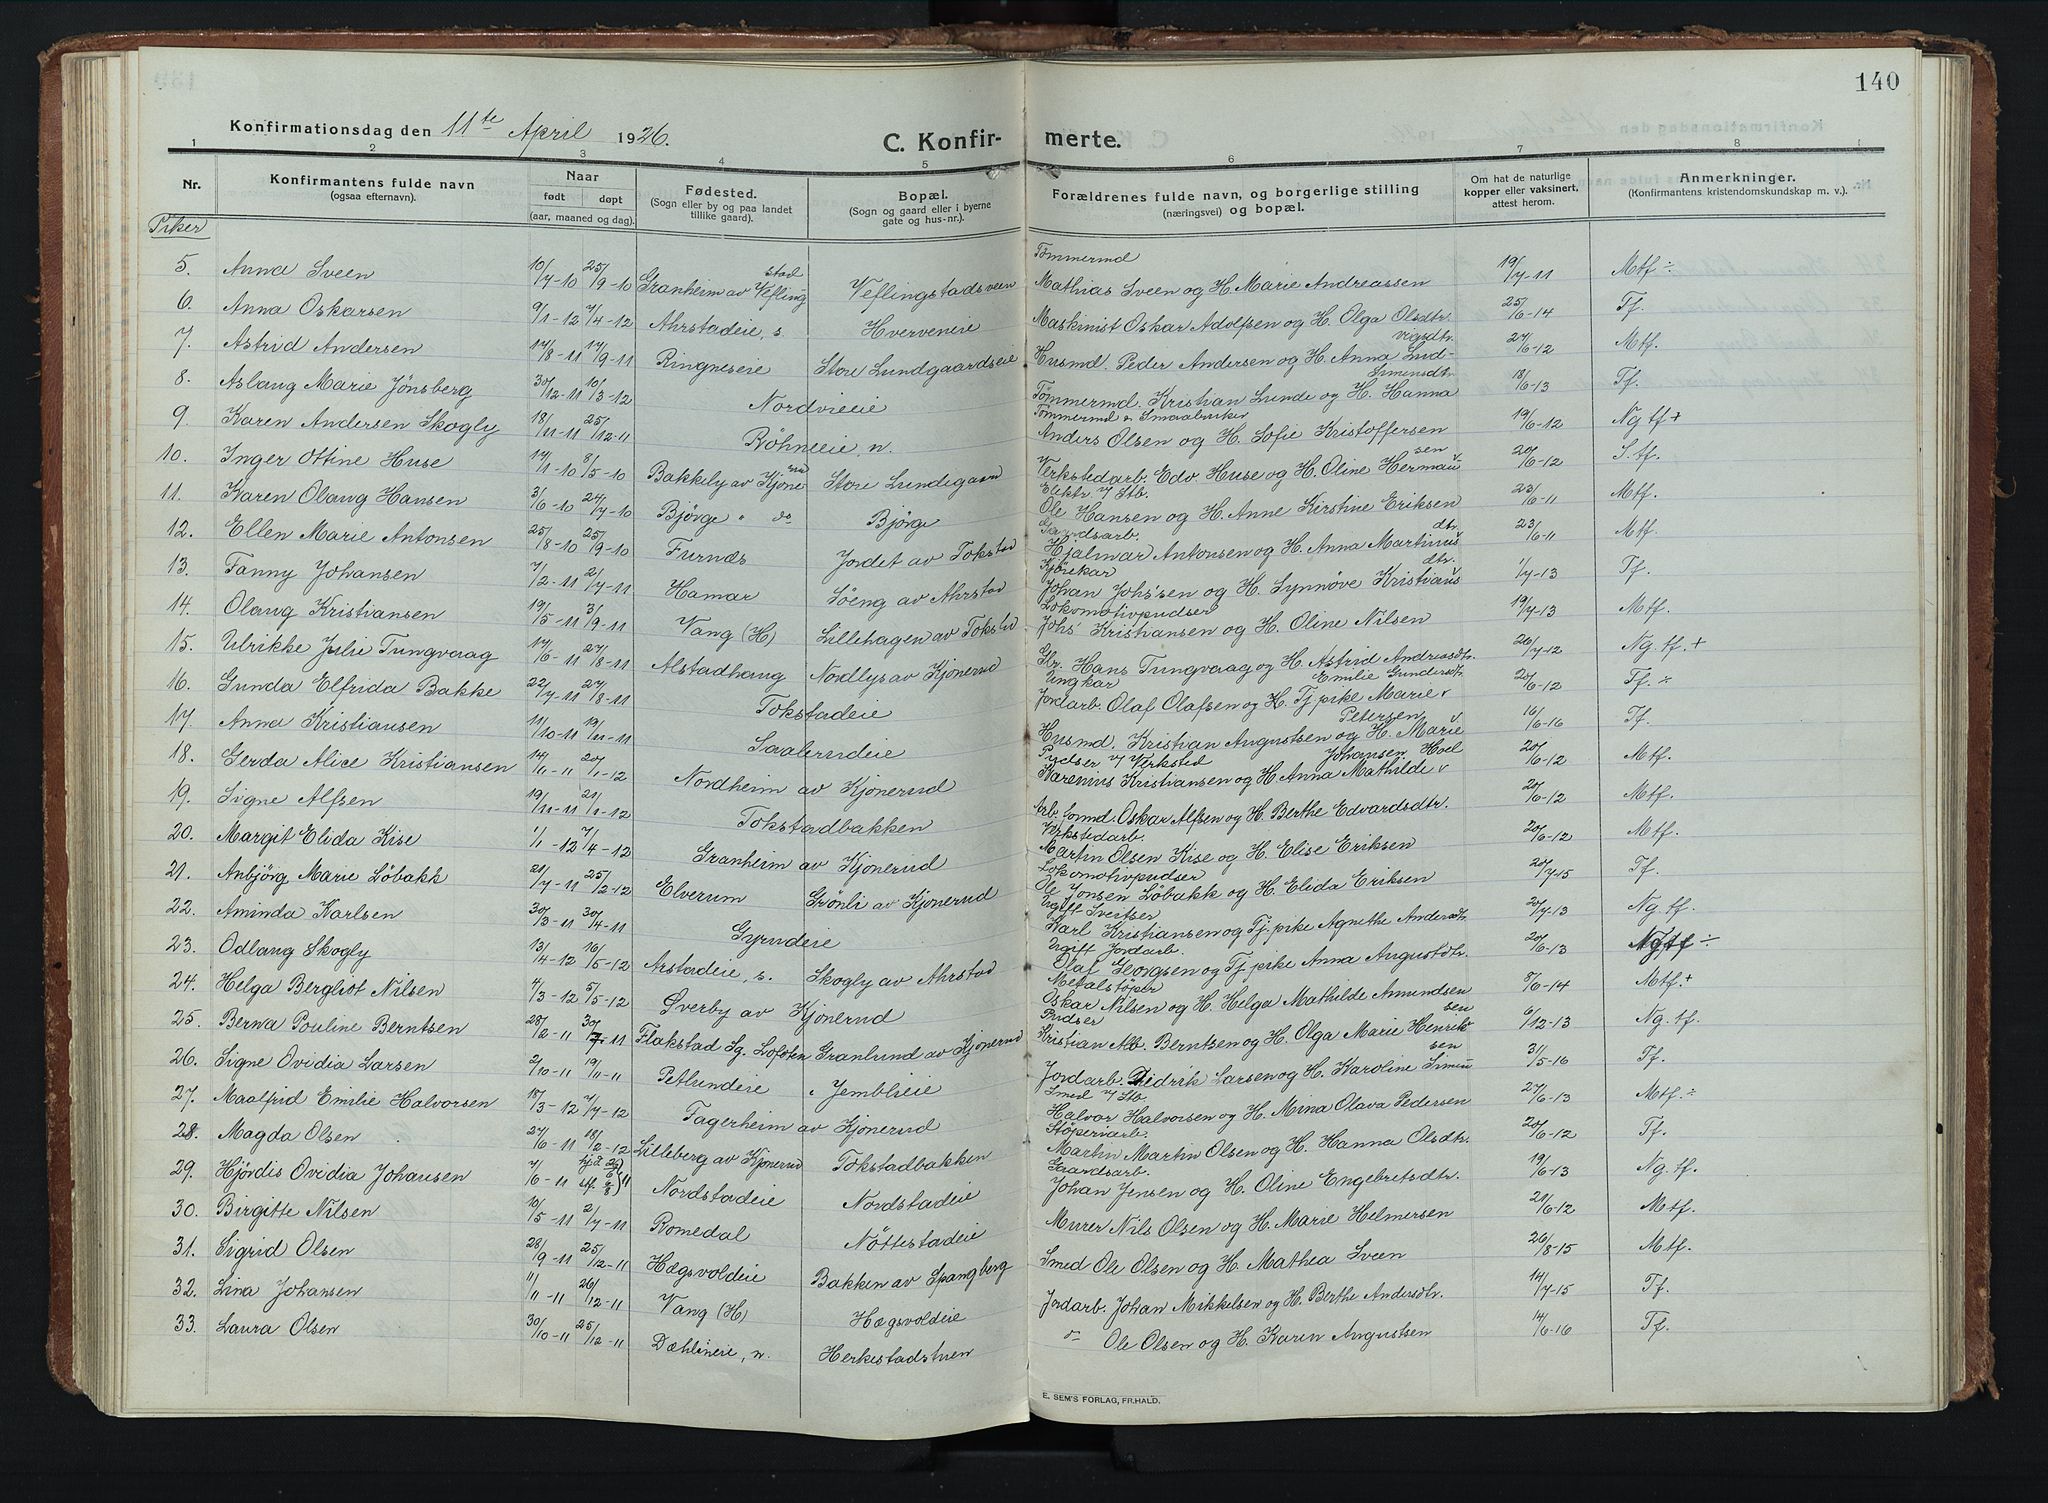 140
Konfirmationsdag den 11te April 1926.
C. Konfirmerte.
1 2 3 4 5 6 7 8
Nr.
Konfirmantens fulde navn (ogsaa efternavn).
Naar født døpt (aar, maaned og dag).
Fødested. (Sogn eller by og paa landet tillike gaard).
Bopæl. (Sogn og gaard eller i byerne gate og hus-nr.).
Forældrenes fulde navn, og borgerlige stilling (næringsvei) og bopæl.
Om hat de naturlige kopper eller vaksinert, attest herom.
Anmerkninger. (Konfirmantens kristendomskundskap m. v.).
Piker
5. Anna Sveen 10/7-10 25/9-10 Granheim av Veflingstad Veflingstadsveen Tømmermd Mathias Sveen og H. Marie Andreassen 19/7-11 Mtf ÷
6. Anna Oskarsen 9/1-12 7/4-12 Ahrstadeie, s. Hverveneie Maskinist Oskar Adolfsen og H. Olga Olsdtr. 25/6-14 Tf.
7. Astrid Andersen 17/8-11 17/9-11 Ringneseie Store Lundgaardseie Husmd. Peder Andersen og H. Anna Ludvigsdtr. 27/6-12 Mtf.
8. Aslaug Marie Jönsberg 30/12-11 10/3-12 Nordvieeie Tømmermd. Kristian Lunde og H. Hanna Simensdtr. 18/6-13 Tf.
9. Karen Andersen Skogly 18/11-11 25/12-11 Röhneeie, n. Tømmermd & Smaabruker Anders Olsen og H. Sofie Kristoffersen 19/6-12 Ng tf +
10. Inger Ottine Huse 17/1-10 8/5-10 Bakkely av Kjonerud Store Lundgaard Verkstedarb. Edv. Huse og H. Oline Hermansen 20/6-12 S. tf.
11. Karen Olaug Hansen 3/6-10 24/7-10 Bjørge " do Bjørge Elektr. v/ Stb. Ole Hansen og H. Anne Kirstine Eriksen 23/6-11 Mtf.
12. Ellen Marie Antonsen 25/8-10 25/9-10 Furnæs Jordet av Tokstad Gaardsarb. Hjalmar Antonsen og H. Anna Martinusdtr. 23/6-11 Mtf.
13. Fanny Johansen 7/2-11 2/7-11 Hamar Söeng av Ahrstad Kjørekar Johan Johs'sen og H. Synnøve Kristiansdtr. 1/7-13 Tf.
14. Olaug Kristiansen 19/5-11 3/9-11 Vang (H) Lillehagen av Tokstad Lokomotivpudser Johs Kristiansen og H. Oline Nilsen 19/7-13 Mtf.
15. Ulrikke Julie Tungvaag 17/6-11 27/8-11 Alstadhaug Nordlys av Kjonerud Hans Tungvaag og H. Astrid Andreasdtr. 26/7-12 Ng. tf. +
16. Gunda Elfrida Bakke 22/7-11 27/8-11 Tokstadeie Ungkar Jordarb. Olaf Olafsen og H. Tj. pike Marie Emilie Gundersdtr 27/6-12 Tf. ÷
17. Anna Kristiansen 11/10-11 19/11-11 Saalerudeie Husmd. Kristian Augustsen og H. Marie Petersen 16/6-16 Tf.
18. Gerda Alice Kristiansen 14/11-11 20/1-12 Nordheim av Kjonerud Pudser v/ Verksted Karenius Kristiansen og H Anna Mathilde Johansen Hoel 20/6-12 Mtf.
19. Signe Alfsen 19/11-11 21/1-12 Tokstadbakken Arb. formd. Oskar Alfsen og H. Berthe Edvardsdtr. 27/6-12 Mtf.
20. Margit Elida Kise 1/1-12 7/4-12 Granheim av Kjonerud Verkstedarb. Martin Olsen Kise og H. Elise Eriksen 20/6-12 Mtf.
21. Anbjørg Marie Löbakk 21/7-11 25/2-12 Elverum Grønli av Kjonerud Lokomotivpudser Ole Jonsen Löbakk og H. Elida Eriksen 20/7-15 Tf.
22. Aminda Karlsen 30/3-11 30/4-11 Gyrudeie Ugift Sveitser Karl Kristiansen og Tj. pike Agnethe Andersdtr 20/7-13 Ng. tf.
23. Odlaug Skogly 13/4-12 16/5-12 Arstadeie, s. Skogly av Ahrstad Ugift Jordarb. Olaf Georgsen og Tj pike Anna Augustdtr. 20/6-13 Ngtf ÷
24. Helga Bergliot Nilsen 4/3-12 5/5-12 Sverby av Kjonerud Metalstøper Oskar Nilsen og H. Helga Mathilde Amundsen 8/6-14 Mtf. +
25. Berna Pouline Berntsen 28/2-11 30/7-11 Flakstad Sg. Lofoten Granlund av Kjonerud Pudser Kristian Alb. Berntsen og H. Olga Marie Henriksen 6/12-13 Ng. tf.
26. Signe Ovidia Larsen 2/10-11 19/11-11 Petlundeie Jemblieie Jordarb. Didrik Larsen og H. Karoline Simensen 31/5-16 Tf.
27. Maalfrid Emilie Halvorsen 18/3-12 7/7-12 Fagerheim av Kjonerud Smed v/ Stb. Halvor Halvorsen og H. Mina Olava Pedersen 27/6-13 Mtf. ÷
28. Magda Olsen 27/6-11 18/2-12 Lilleberg av Kjonerud Tokstadbakken Støperiarb. Martin Martin Olsen og H. Hanna Olsdtr. 20/6-12 Tf.
29. Hjørdis Ovidia Johansen 7/6-11 Nordstadeie Nordstadeie Gaardsarb. Johan Jensen og H. Oline Engebretsdtr. 19/6-13 Ng. tf.
30. Birgitte Nilsen 10/5-11 2/7-11 Romedal Nöttestadeie Murer Nils Olsen og H. Marie Helmersen 21/6-12 Mtf.
31. Sigrid Olsen 28/9-11 25/12-11 Hægsvoldeie Bakken av Spangberg Smed Ole Olsen og H. Mathea Sveen 26/8-15 Mtf.
32. Lina Johansen 11/11-11 26/12-11 Vang (H) Hægsvoldeie Jordarb. Johan Mikkelsen og H. Berthe Andersdtr. 14/7-15 Tf.
33. Laura Olsen 30/10-11 25/12-11 Dæhlineie, n. Herkestadstuen do Ole Olsen og H. Karen Augustsen 14/6-16 Tf.
E. SEM'S FORLAG, FR.HALD.